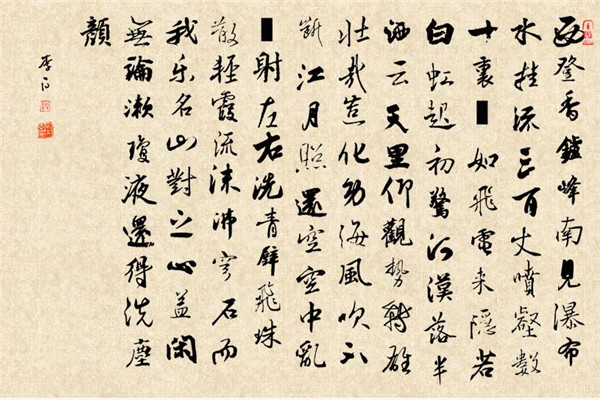 西登香鑪峰南見瀑布
水挂流三百丈噴壑數
十裏▮如飛電来隱若
白虹起初驚河漢落半
洒云天里仰觀勢轉雄
壯哉造化功海風吹不
斷江月照還空空中亂
▮射左右洗青壁飛珠
散輕霞流沫沸穹石而
我乐名山對之心益閑
無論漱瓊液還得洗塵
顏
李白